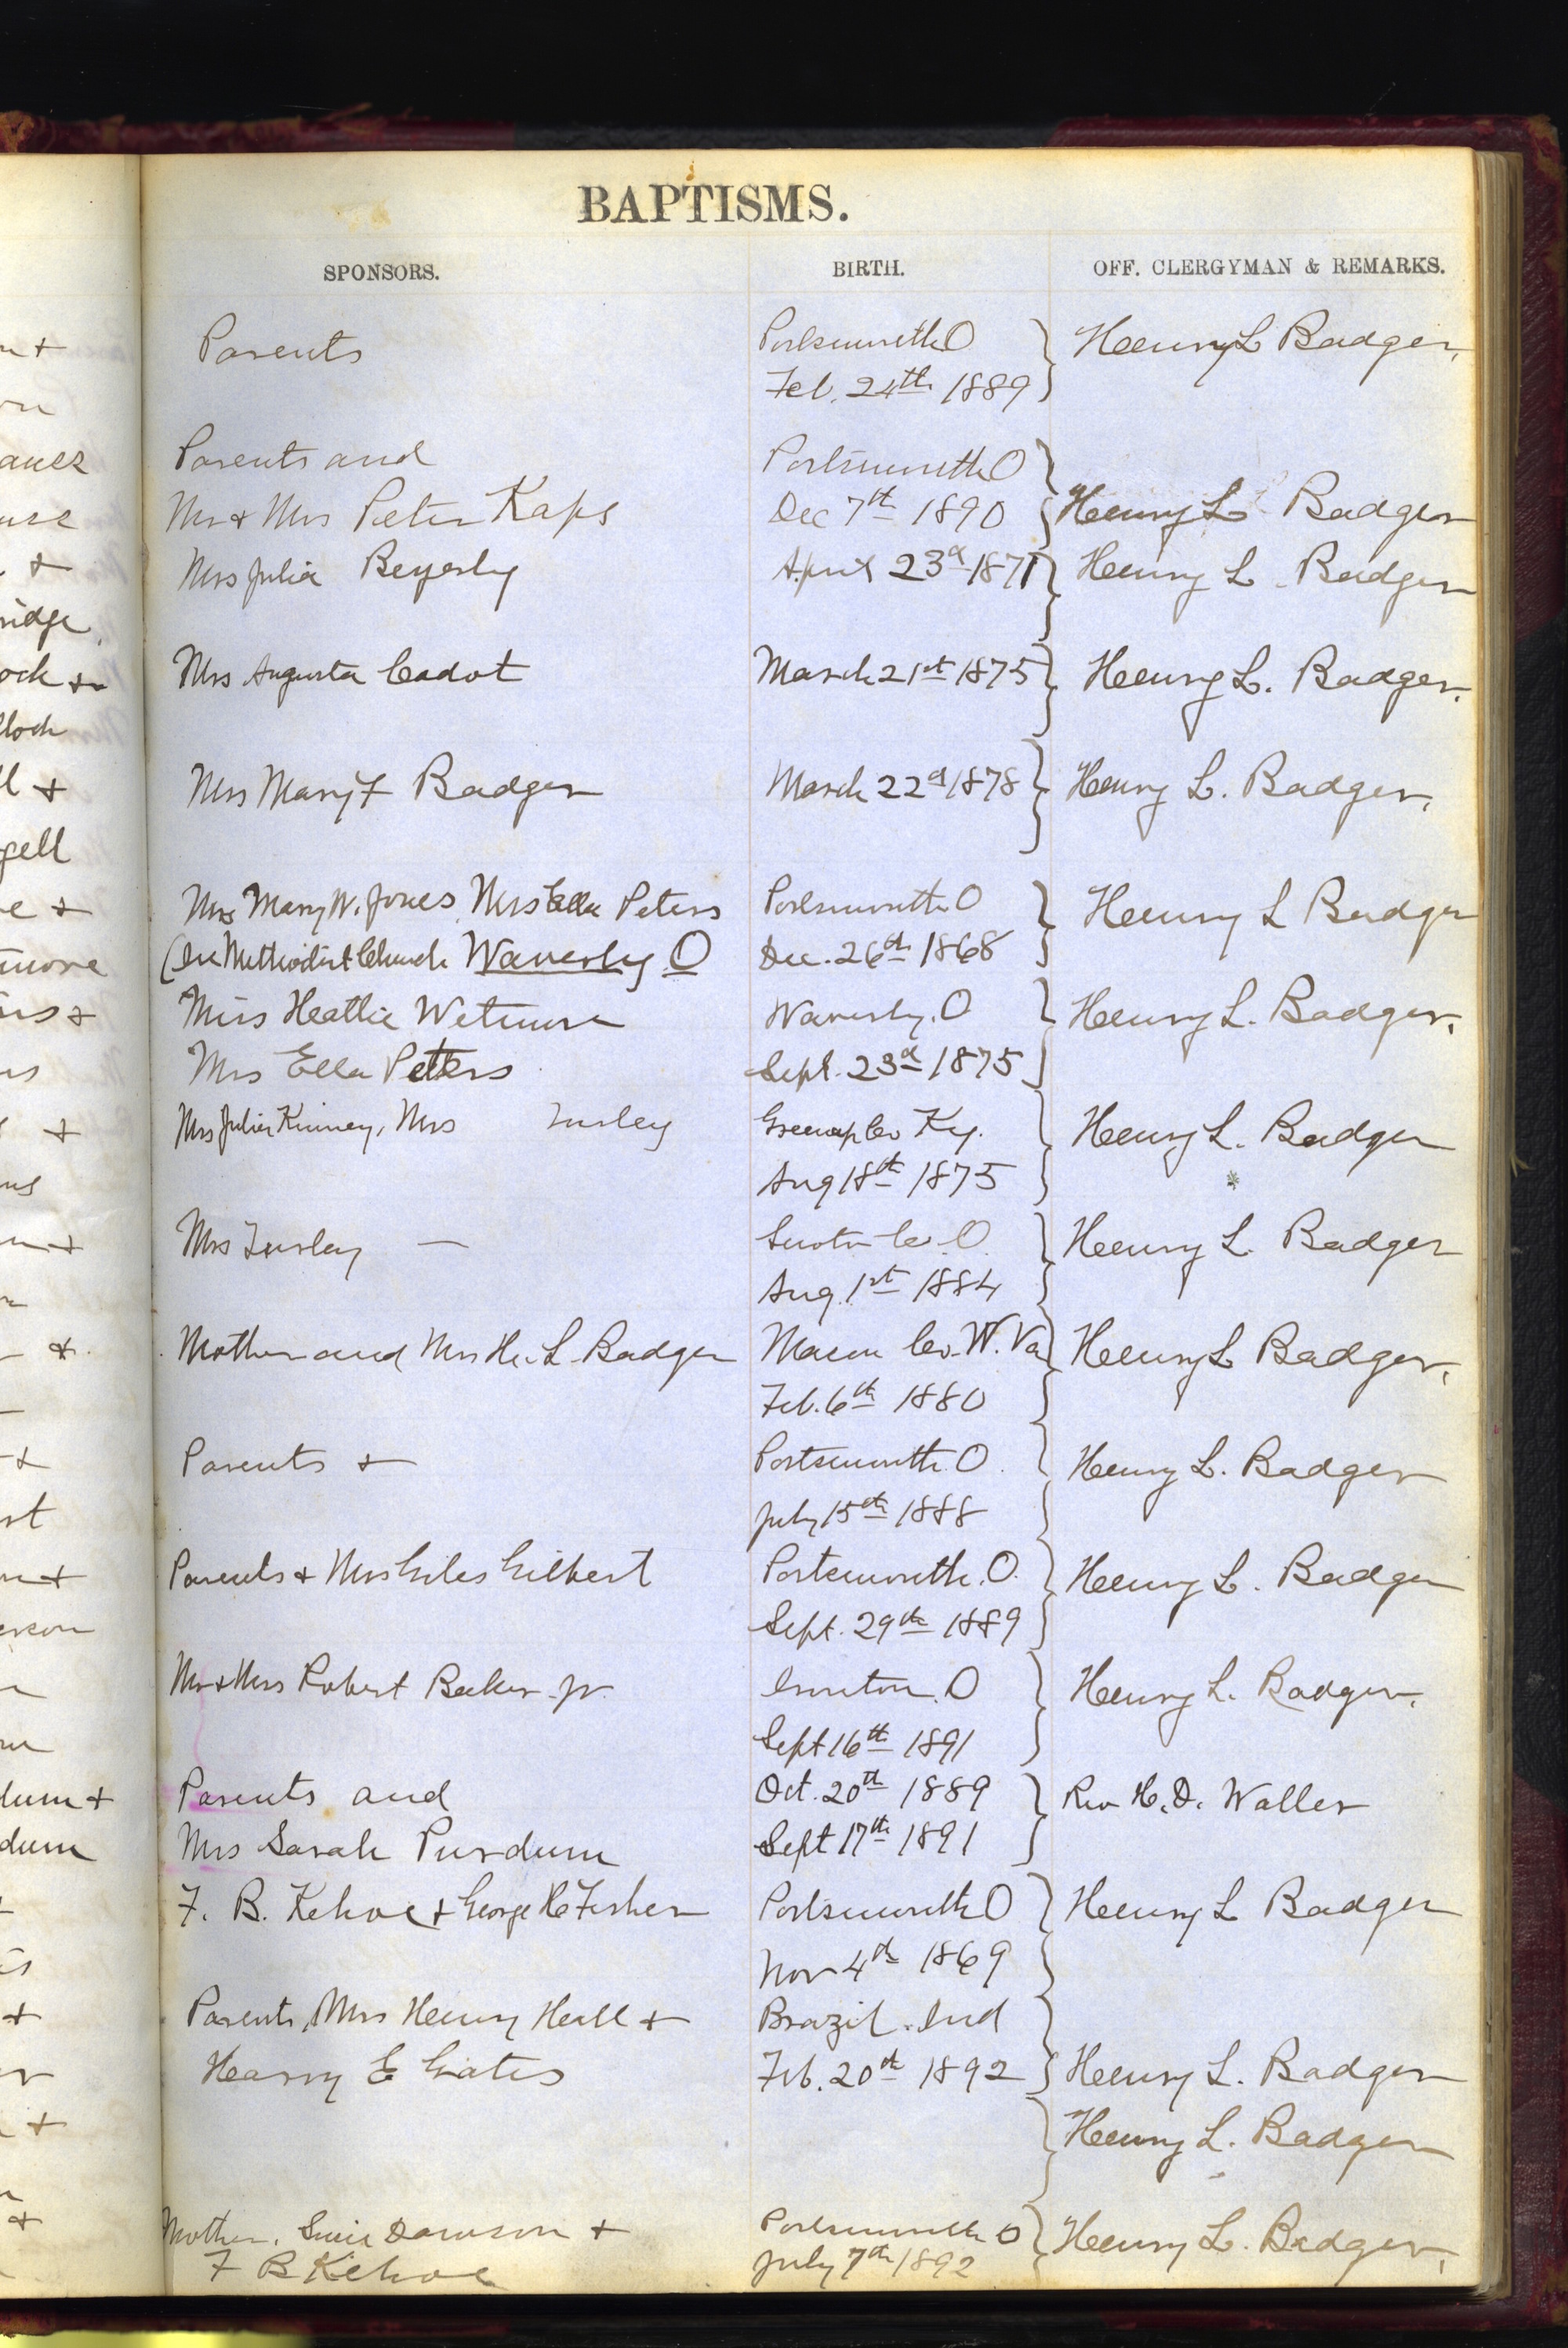 BAPTISMS.
SPONSORS. BIRTH. OFF. CLERGYMAN & REMARKS.
Parents Portsmouth O Henry L Badger,
Feb. 24th 1889
Parents and Portsmouth O
Mr & Mrs Peter Kaps Dec 7th 1890 Henry L Badger
Mrs Julia Beyerly April 23d 1871 Henry L. Badger
Mrs Augusta Cadot March 21st 1875 Henry L. Badger.
Mrs Mary F Badger March 22d 1878 Henry L. Badger.
Mrs Mary W. Jones Mrs Ella Peters Portsmouth O Henry L Badger
(In Methodist Church Waverly O Dec. 26th 1868
Miss Heattie Wetmore Waverly. O Henry L. Badger.
Mrs Ella Peters Sept. 23d 1875
Mrs Julia Kinney, Mrs Turley Greenup Co Ky. Henry L. Badger
Aug 18th 1875
Mrs Turley — Scioto Co. O. Henry L. Badger
Aug. 1st 1884
Mother and Mrs H. L. Badger Mason Co. W. Va Henry L Badger.
Feb. 6th 1880
Parents + Portsmouth. O. Henry L. Badger
July 15th 1888
Parents + Mrs Giles Gilbert Portsmouth. O. Henry L. Badger
Sept. 29th 1889
Mr & Mrs Robert Baker. Jr. Ironton. O Henry L. Badger.
Sept 16th 1891
Parents and Oct. 20th 1889 Rev H. D. Waller
Mrs Sarah Purdum Sept 17th 1891
F. B. Kehoe + George H Fisher Portsmouth O Henry L Badger
Nov 4th 1869
Parents, Mrs Henry Hall + Brazil. Ind
Harry E Gates Feb. 20th 1892 Henry L. Badger
Henry L. Badger
Mother. Dawson + Portsmouth O Henry L. Badger.
F B Kehoe July 7th 1892